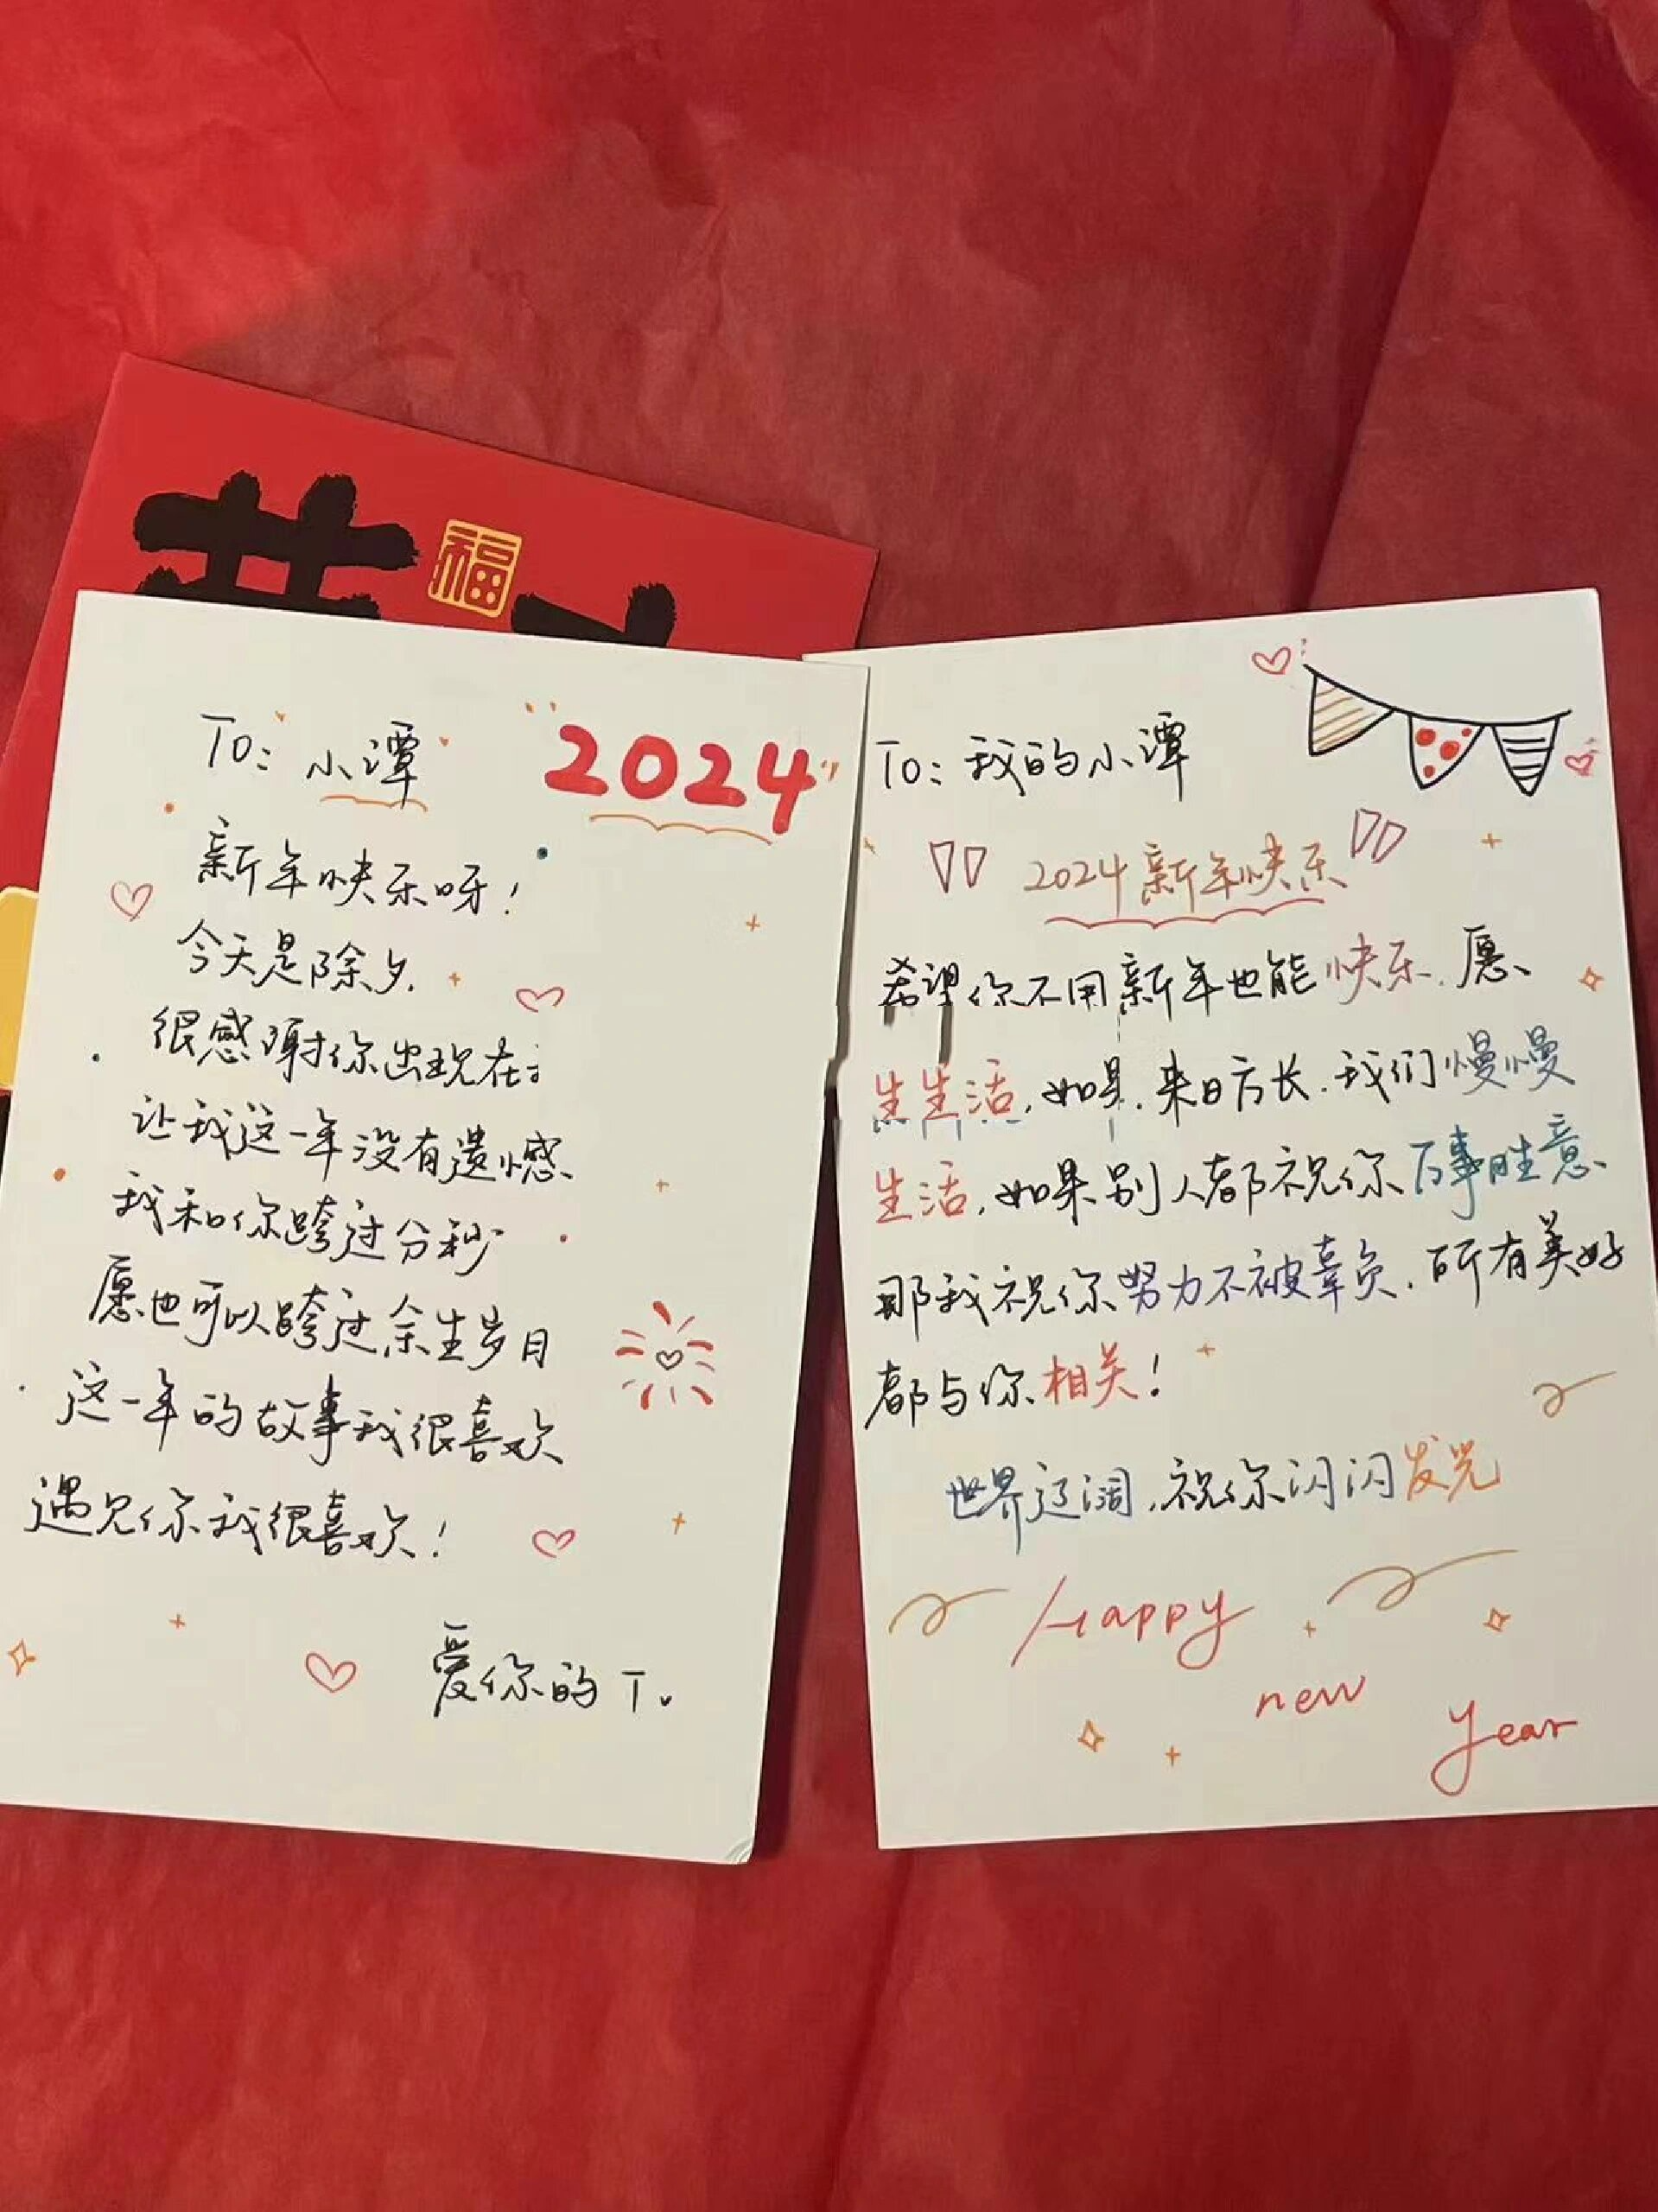 福
To: 小潭
2024
新年快乐呀!
今天是除夕.
很感谢你出现在
让我这一年没有遗憾、
我和你跨过分秒
愿也可以跨过余生岁月
这一年的故事我很喜欢
遇见你我很喜欢!
爱你的T.
To: 我的小潭
2024新年快乐
希望你不用新年也能快乐.愿、
生生活,如果.来日方长.我们慢慢
生活,如果别人都祝你万事胜意、
那我祝你努力不被辜负.所有美好
都与你相关!
世界辽阔,祝你闪闪发光
Happy
new
year